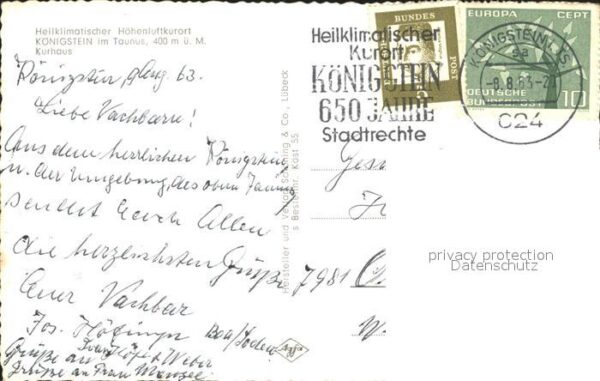 Heilklimatischer Höhenluftkurort
KÖNIGSTEIN im Taunus, 400 m ü. M.
Kurhaus
Königstein, 9 Aug. 63.
Liebe Nachbarn!
Aus dem herrlichen Königstein
u. der Umgebung, des obern Taunus
sendet Euch Allen
die herzlichsten Grüße
Euer Nachbar
Jos.
Grüße an
Weber
Grüße an Frau
Hersteller und Verlag Schöning & Co., Lübeck
Bestellnr. Köst 55
Heilklimatischer
Kurort
KÖNIGSTEIN
650 JAHRE
Stadtrechte
BUNDES
POST
EUROPA CEPT
DEUTSCHE
BUNDESPOST
10
KÖNIGSTEIN, TS
-8.8.63-
624
7981
privacy protection
Datenschutz